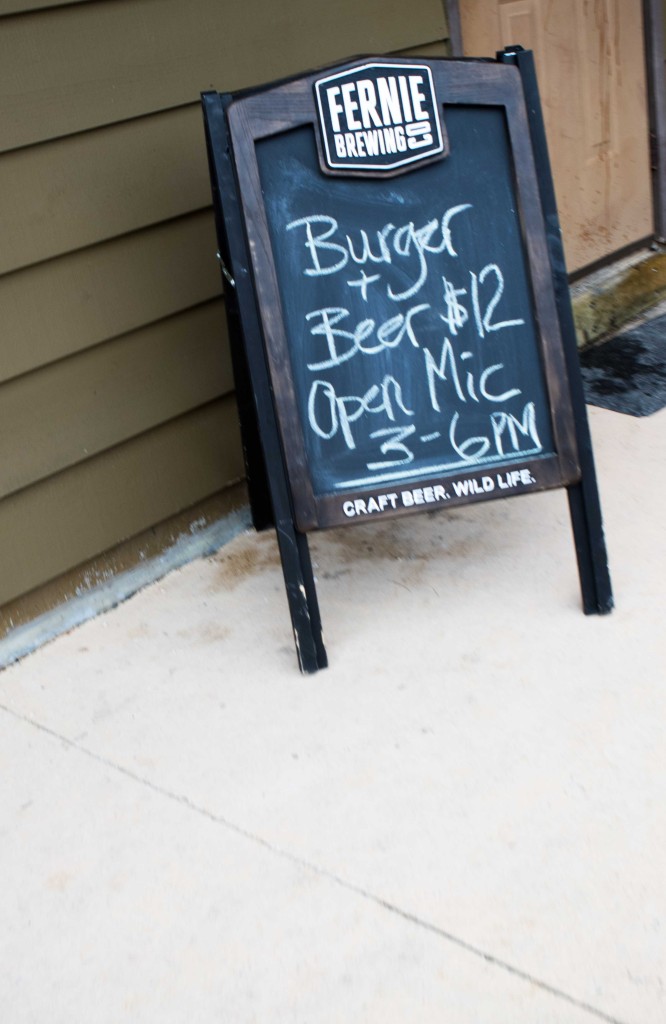 FERNIE
BREWING CO
Burger
+
Beer $12
Open Mic
3-6PM
CRAFT BEER. WILD LIFE.